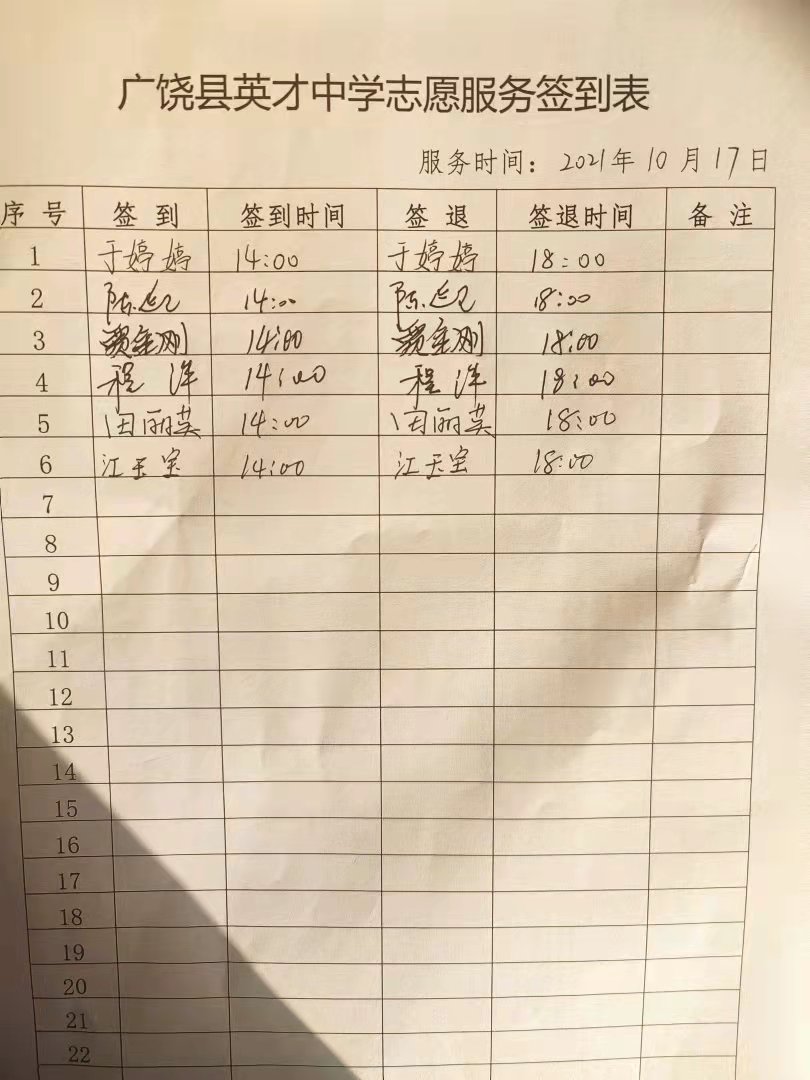 广饶县英才中学志愿服务签到表
服务时间：2021年10月17日
序号 签到 签到时间 签退 签退时间 备注
1 于婷婷 14:00 于婷婷 18:00
2 14:00 18:00
3 14:00 18:00
4 程洋 14:00 程洋 18:00
5 田丽英 14:00 田丽英 18:00
6 江天宝 14:00 江天宝 18:00
7
8
9
10
11
12
13
14
15
16
17
18
19
20
21
22